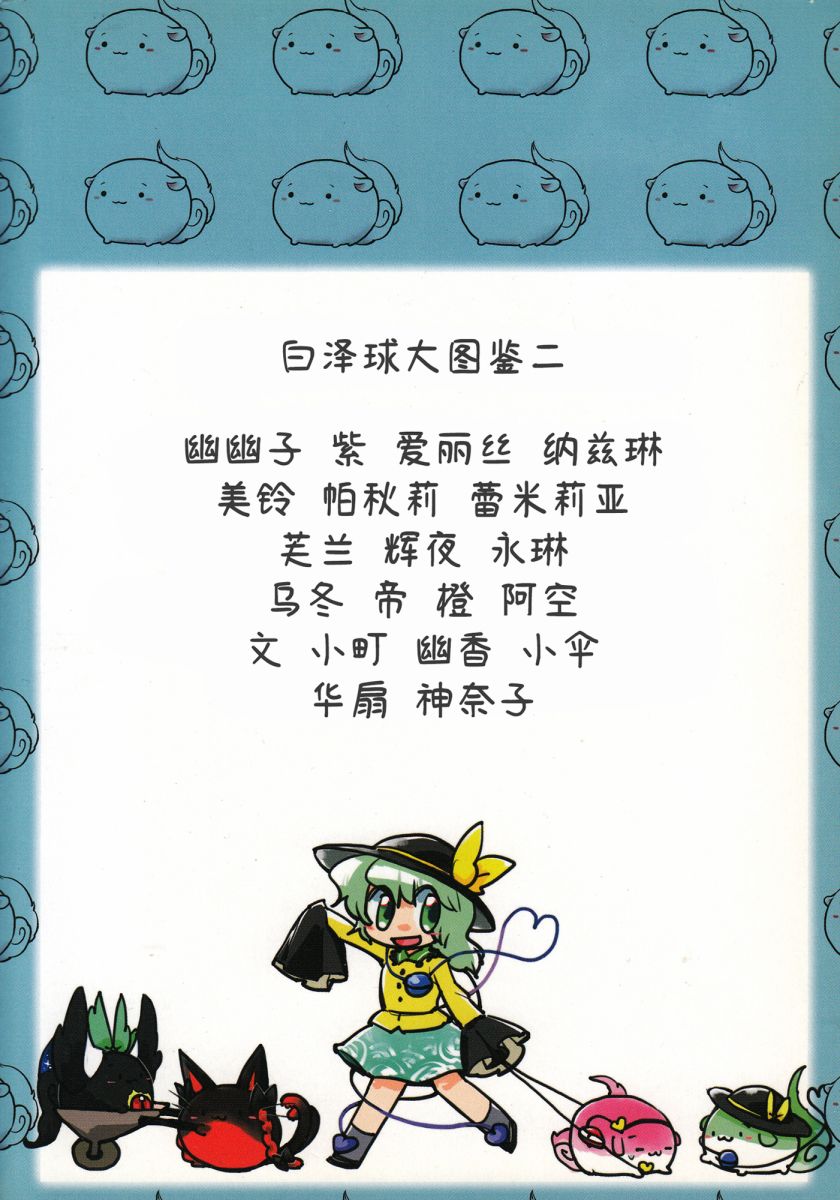 白泽球大图鉴二
幽幽子 紫 爱丽丝 纳兹琳
美铃 帕秋莉 蕾米莉亚
芙兰 辉夜 永琳
乌冬 帝 橙 阿空
文 小町 幽香 小伞
华扇 神奈子